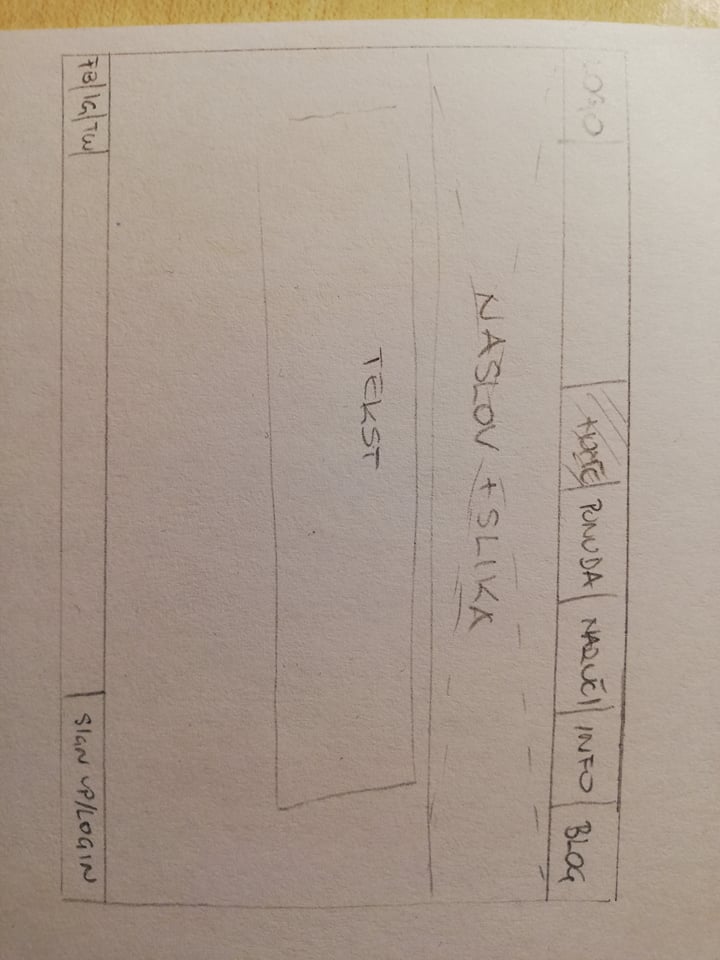 LOGO HOME PONUDA NARUČI INFO BLOG
NASLOV + SLIKA
TEKST
FB IG TW SIGN UP/LOGIN